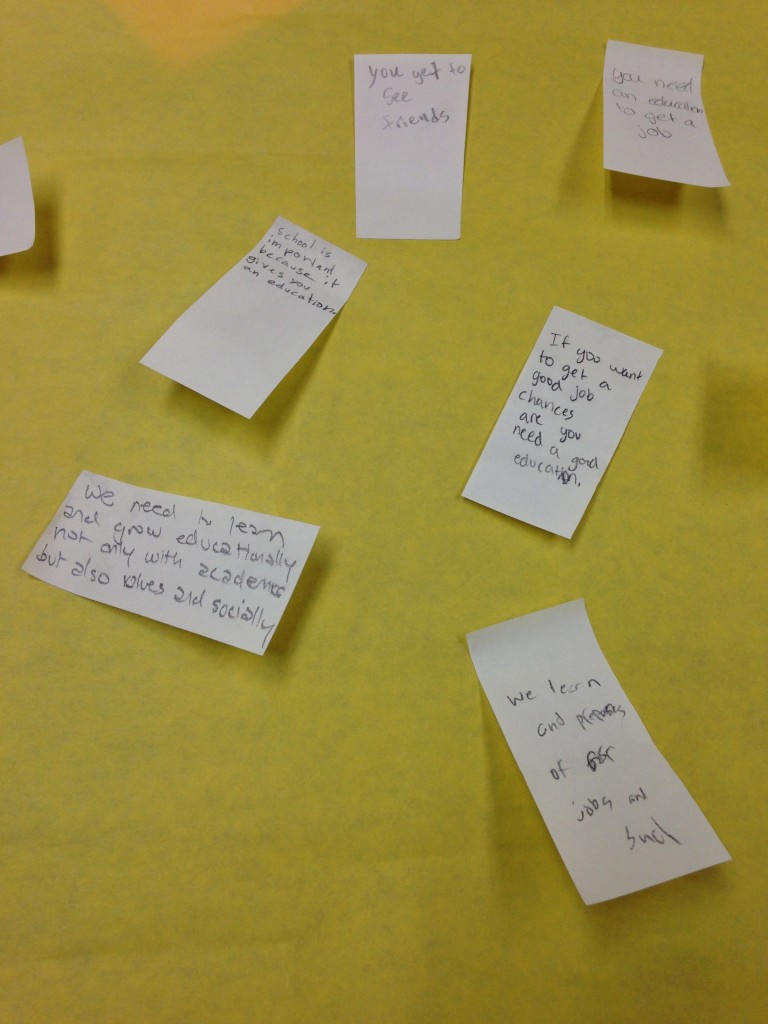 you get to
see
friends
you need
an education
to get a
job
school is
important
because it
gives you
an education
If you want
to get a
good job
chances
are you
need a good
education.
We need to learn
and grow educationally
not only with academic
but also and socially
We learn
and
of for
jobs and
such